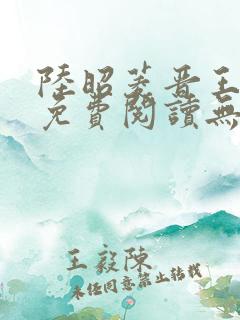 陸昭菱晋王
免費閱讀無
王毅陳
未经同意禁止转载